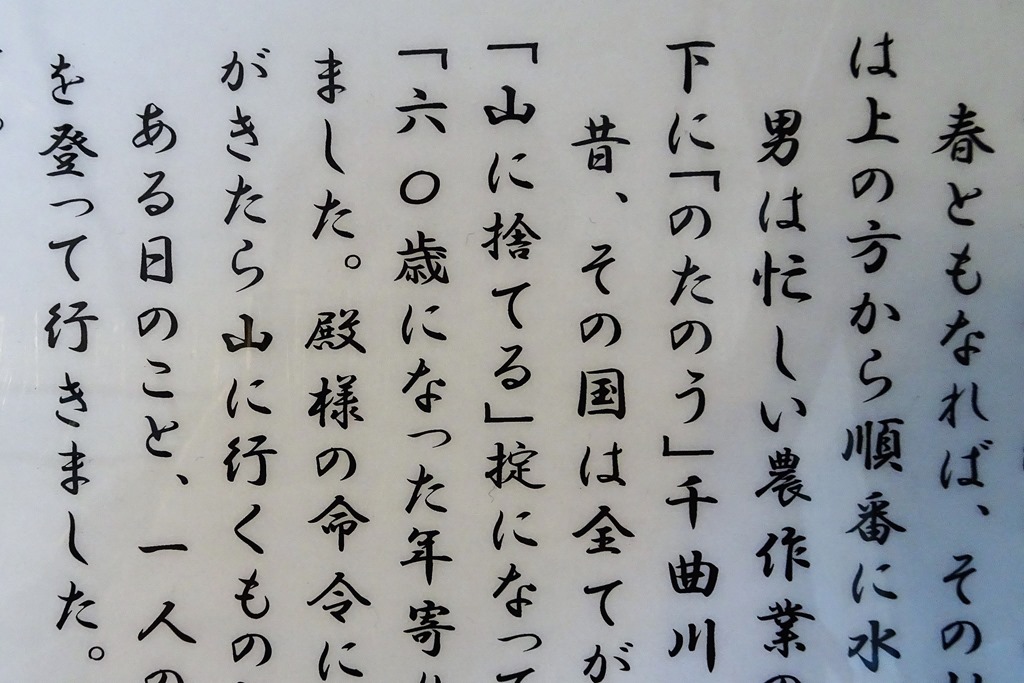 春ともなれば、その
は上の方から順番に水
男は忙しい農作業の
下に「のたのう」千曲川
昔、その国は全てが
「山に捨てる」掟になって
「六〇歳になった年寄
ました。殿様の命令に
がきたら山に行くもの
ある日のこと、一人の
を登って行きました。